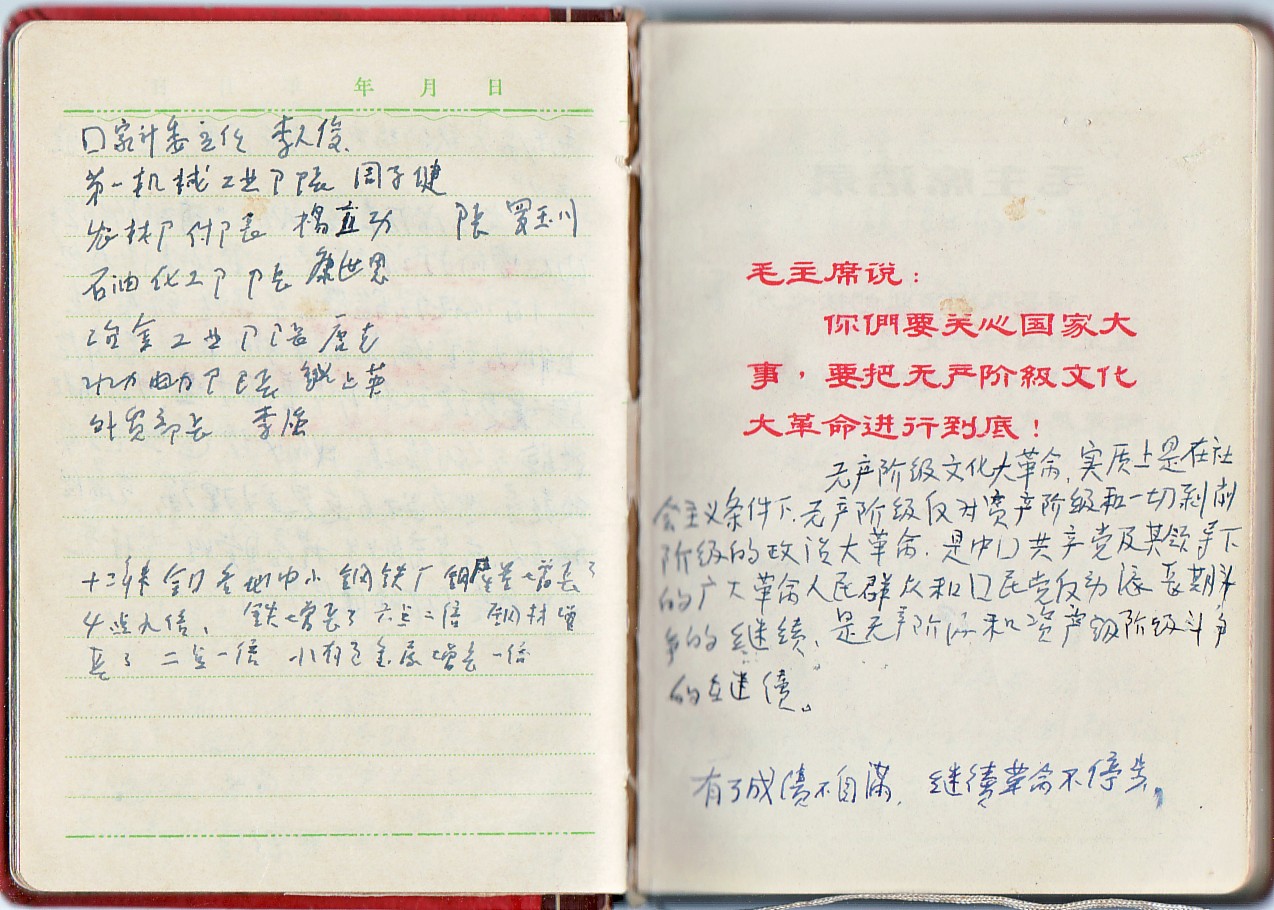 年 月 日
口家计委主任 李人俊.
第一机械工业卩长 周子健
农林卩付卩长 杨立功 卩长 罗玉川
石油化工卩卩长 康世恩
冶金工业卩卩长 唐克
水力电力卩卩长 钱正英
外贸部长 李强
十二年来全口各地中小钢铁厂钢产量增长了
4点九倍, 铁增长了六点二倍 钢材增
长了二点一倍 小有色金属增长一倍
毛主席说:
你們要关心国家大
事,要把无产阶級文化
大革命进行到底!
无产阶级文化大革命,实质上是在社
会主义条件下.无产阶级反对资产阶级和一切剥削
阶级的政治大革命.是中口共产党及其领导下
的广大革命人民群众和口民党反动派长期斗
争的继续,是无产阶级和资产级阶级斗争
的继续。
有了成绩不自满,继续革命不停步,